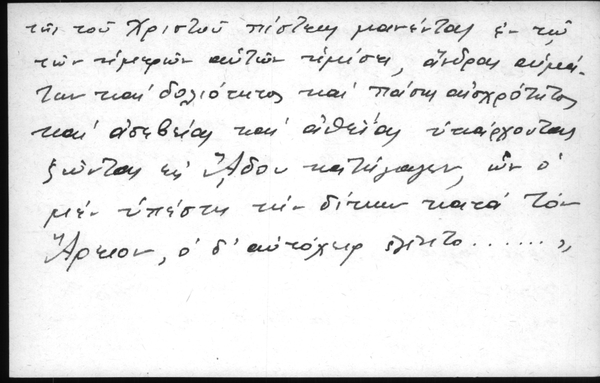 τῆς τοῦ Χριστοῦ πίστεως μανέντας ἐν τῷ
τῶν ἡμερῶν αὐτῶν ἡμίσει, ἄνδρας αἱμά-
των καὶ δολιότητος καὶ πάσης αἰσχρότητος
καὶ ἀσεβείας καὶ ἀθεΐας ὑπάρχοντας
ζῶντας εἰς Ἅδου κατήγαγεν, ὧν ὁ
μὲν ὑπέστη τὴν δίκην κατὰ τὸν
Ἄρειον, ὁ δ' αὐτόχειρ ἐγένετο ......,,